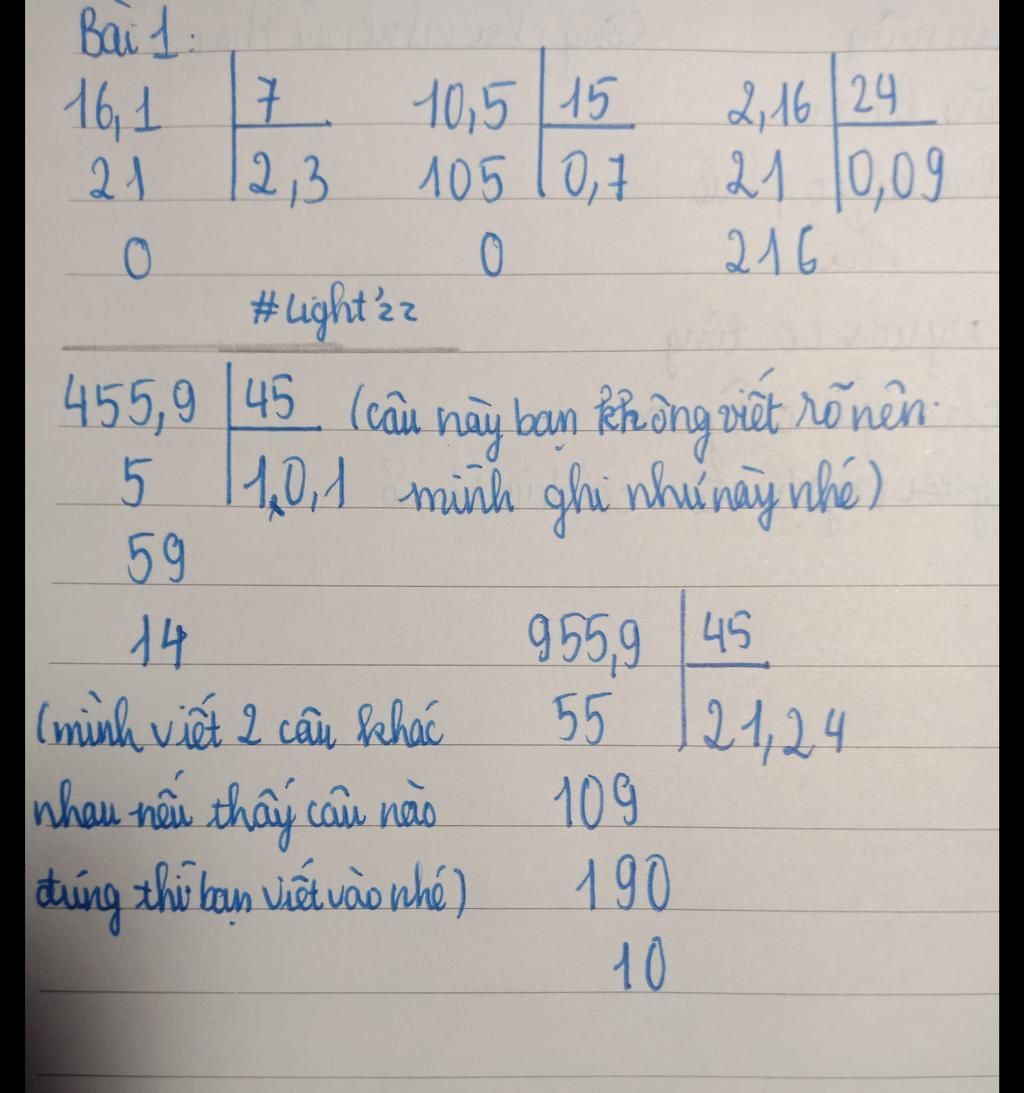 Bài 1:
16,1 7 10,5 15 2,16 24
21 2,3 105 0,7 21 0,09
0 0 216
#Light'zz
455,9 45 (câu này bạn không viết rõ nên
5 10,1 mình ghi như này nhé)
59
14 955,9 45
(mình viết 2 câu khác 55 21,24
nhau nếu thấy câu nào 109
đúng thì bạn viết vào nhé) 190
10